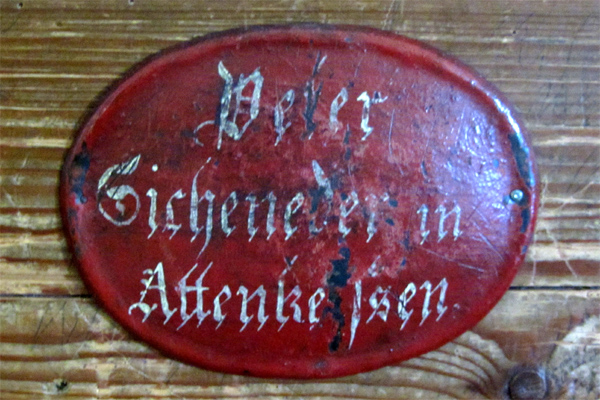 Peter
Eicheneder in
Attenkeſsen.